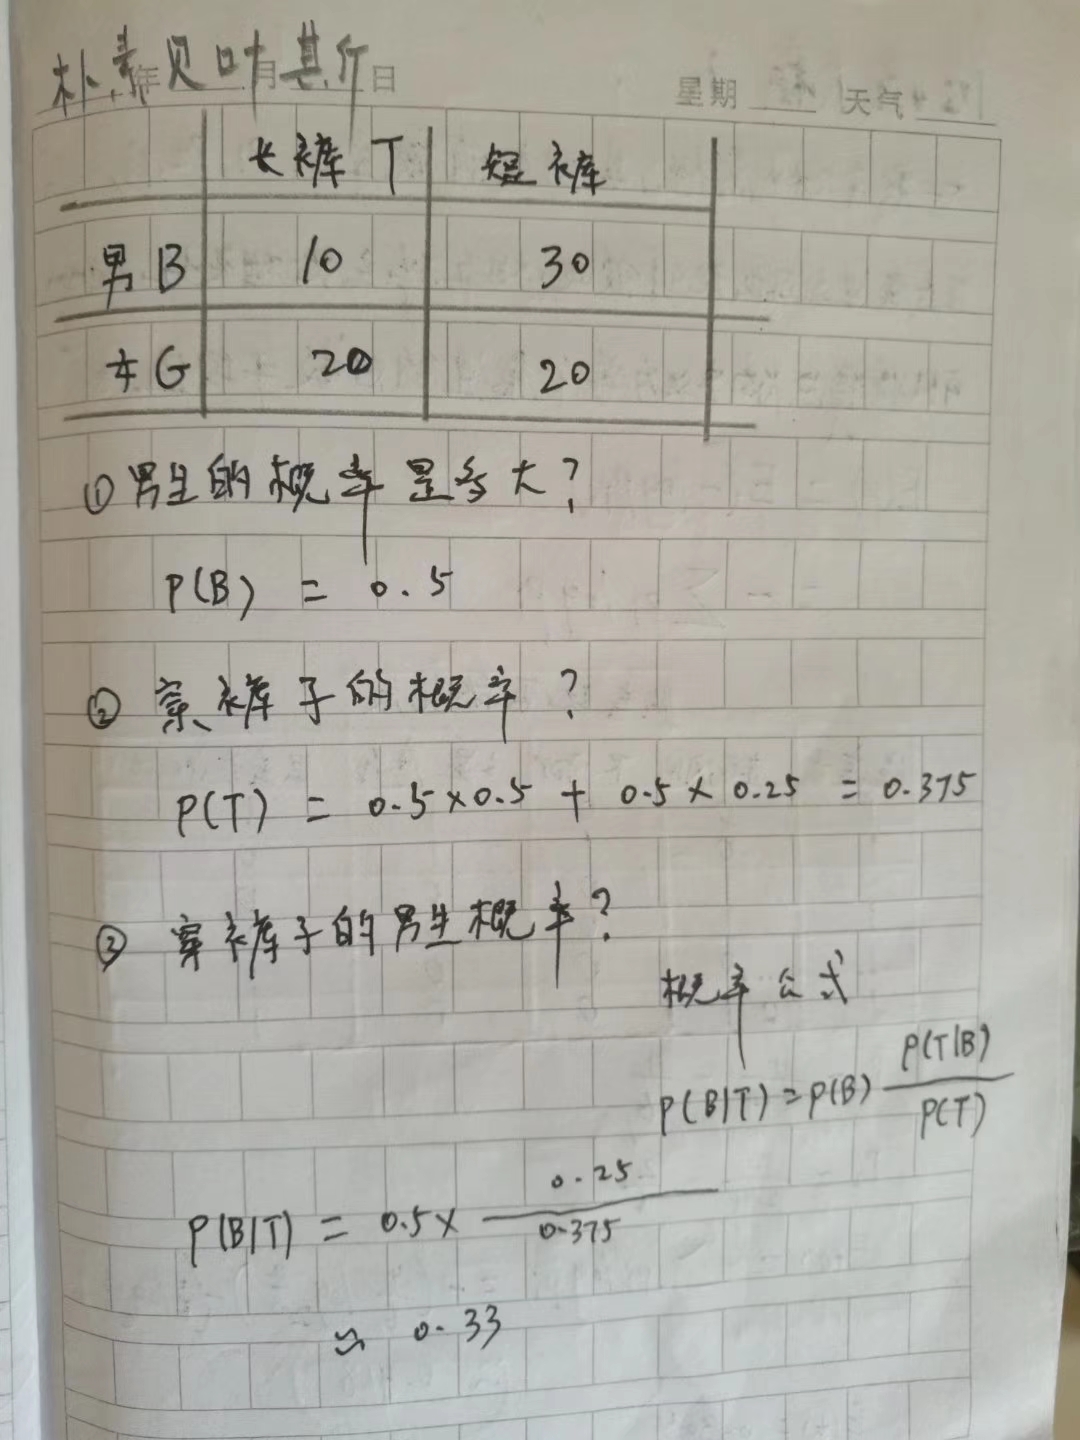 朴素贝叶斯
年 月 日 星期 天气
长裤 T 短裤
男 B 10 30
女 G 20 20
① 男生的概率是多大?
P(B) = 0.5
② 穿裤子的概率?
P(T) = 0.5×0.5 + 0.5×0.25 = 0.375
③ 穿裤子的男生概率?
概率公式
P(B|T) = P(B) P(T|B) / P(T)
P(B|T) = 0.5× 0.25 / 0.375
≈ 0.33